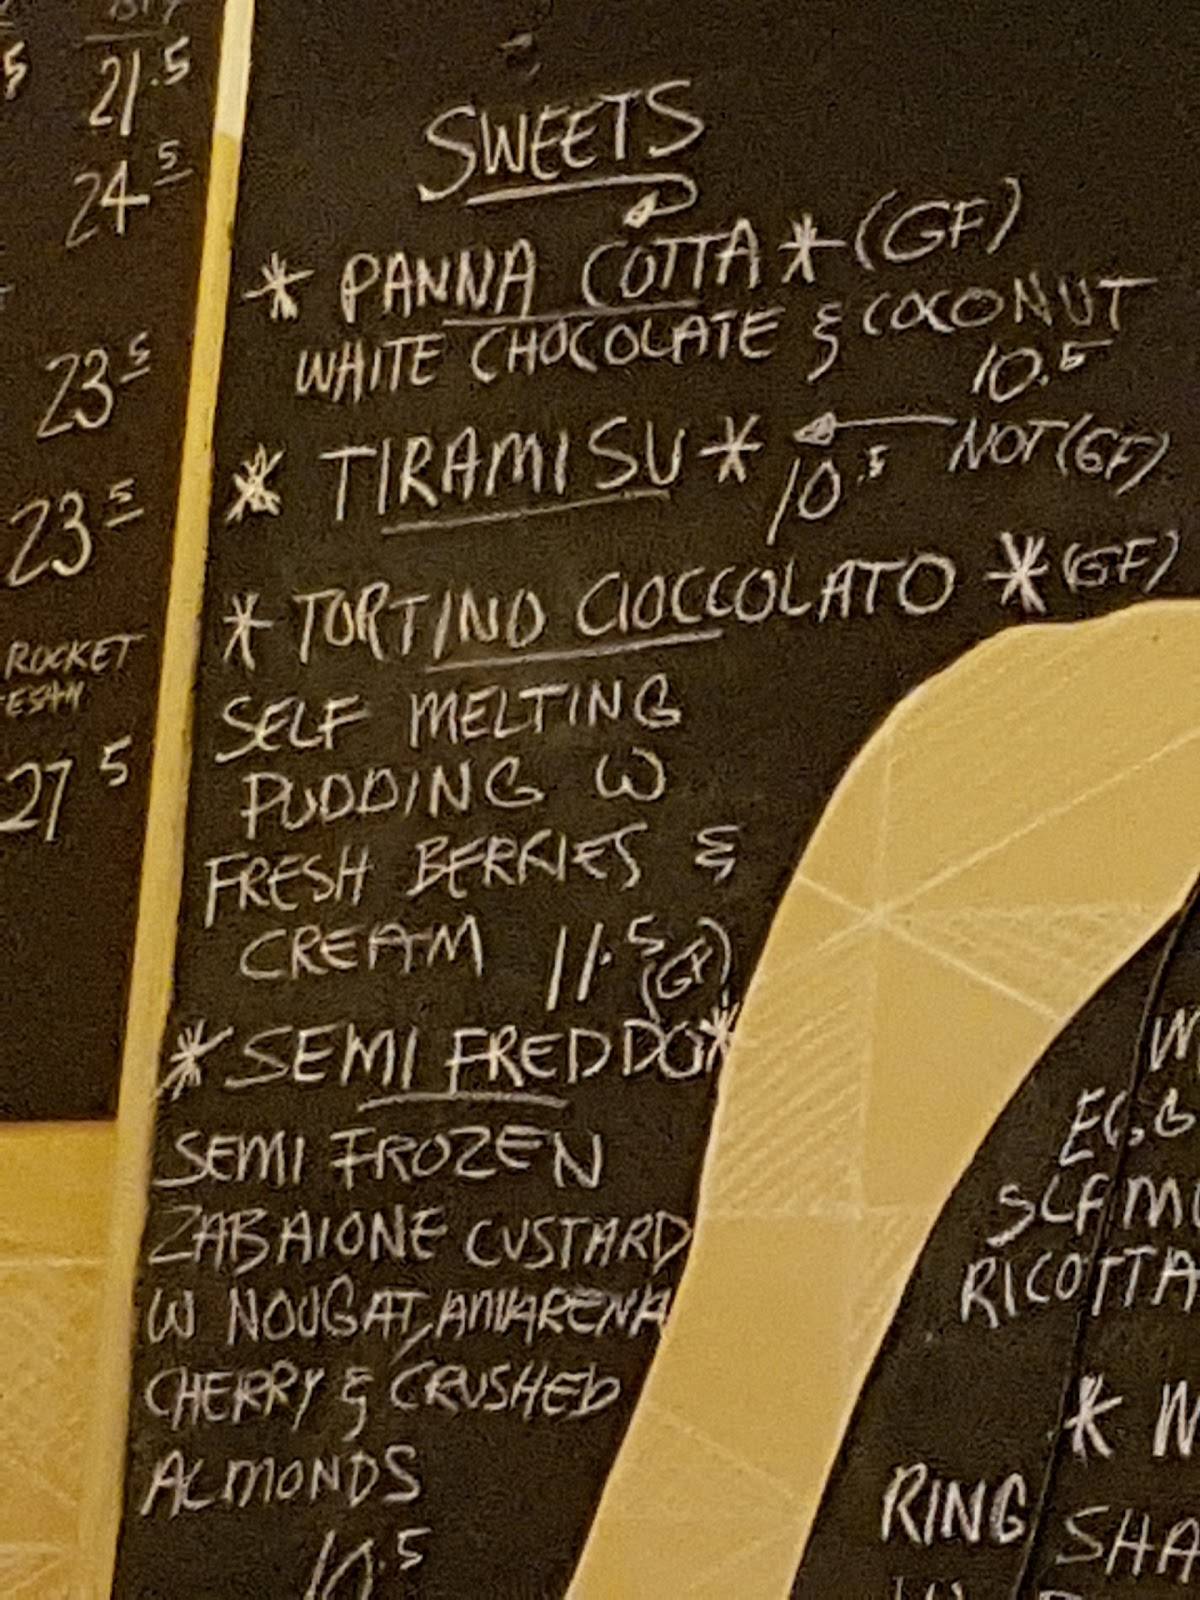 21.5
24.5
23.5
23.5
ROCKET
27.5
SWEETS
* PANNA COTTA * (GF)
WHITE CHOCOLATE & COCONUT
10.5
* TIRAMISU * ← NOT (GF)
10.5
* TORTINO CIOCCOLATO * (GF)
SELF MELTING
PUDDING W
FRESH BERRIES &
CREAM 11.5
(GF)
* SEMI FREDDO *
SEMI FROZEN
ZABAIONE CUSTARD
W NOUGAT, AMARENA
CHERRY & CRUSHED
ALMONDS
10.5
EGG
RICOTTA
RING